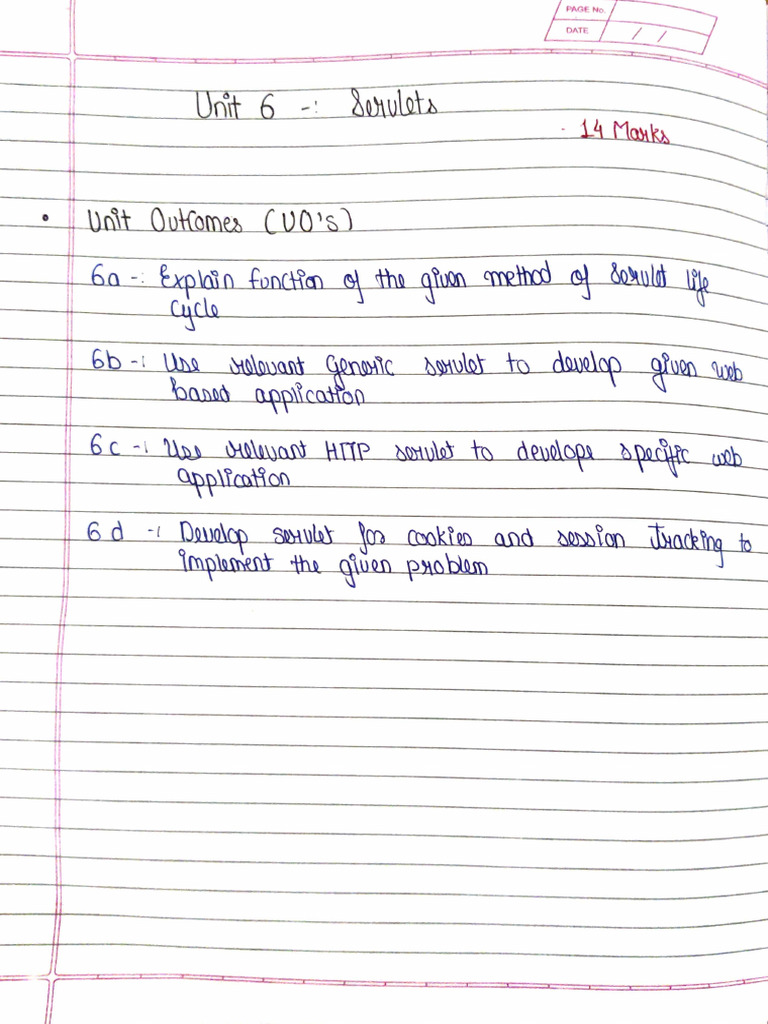 PAGE No.
DATE / /
Unit 6 -: Servlets
14 Marks
• Unit Outcomes (UO's)
6a -: Explain function of the given method of servlet life
cycle
6b -: Use relevant Generic servlet to develop given web
based application
6c -: Use relevant HTTP servlet to develope specific web
application
6d -: Develop servlet for cookies and session Tracking to
implement the given problem